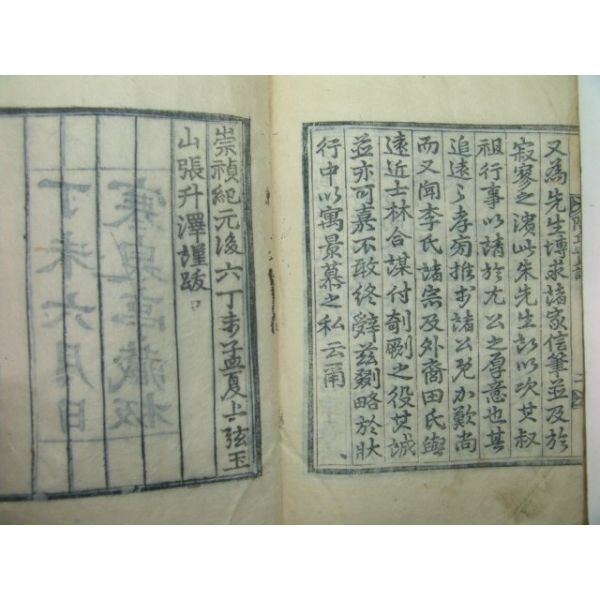 又為先生博求諸家信筆並及於
寂寥之濱此朱先生所以次其叔
祖行事以請於尤公之厚意也其
追遠之孝推於諸公加歎尚
而又聞李氏諸宗及外裔田氏與
遠近士林合謀付剞劂之役其誠
並亦可嘉不敢終辭茲剟略於狀
行中以寓景慕之私云爾
崇禎紀元後六丁未孟夏上弦玉
山張升澤謹跋
丁未六月日
藏板